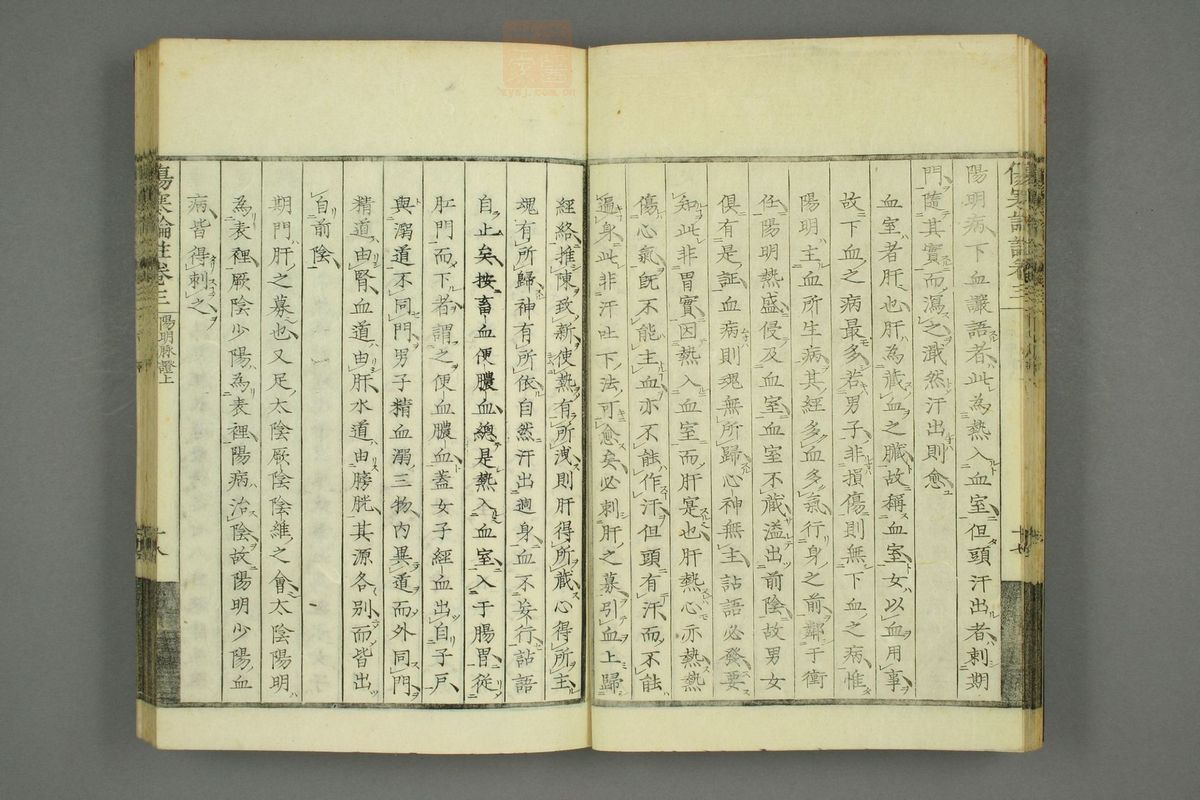 陽明病下血譫語者此為熱入血室但頭汗出者刺期
門隨其實而瀉之濈然汗出則愈
血室者肝也肝為藏血之臟故稱血室女以血用事
故下血之病最多若男子非損傷則無下血之病惟
陽明主血所生病其經多血多氣行身之前鄰于衝
任陽明熱盛侵及血室血室不藏溢出前陰故男女
俱有是証血病則魂無所歸心神無主詀語必發要
知此非胃實因熱入血室而肝寔也肝熱心亦熱熱
傷心氣既不能主血亦不能作汗但頭有汗而不能
遍身此非汗吐下法可愈矣必刺肝之募引血上歸
經絡推陳致新使熱有所洩則肝得所藏心得所主
魂有所歸神有所依自然汗出遍身血不妄行詀語
自止矣按畜血便膿血總是熱入血室入于腸胃從
肛門而下者謂之便血膿血蓋女子經血出自子戶
與溺道不同門男子精血溺三物內異道而外同門
精道由腎血道由肝水道由膀胱其源各別而皆出
自前陰
期門肝之募也又足太陰厥陰陰維之會太陰陽明
為表裡厥陰少陽為表裡陽病治陰故陽明少陽血
病皆得刺之
傷寒論註卷三
陽明脉證上